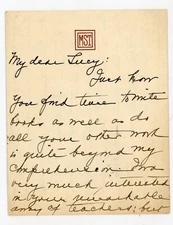 MST
My dear Lucy:
Just how
You find time to write
books as well as do
all your other work
is quite beyond my
comprehension. I was
very much interested
in your remarkable
army of teachers; but